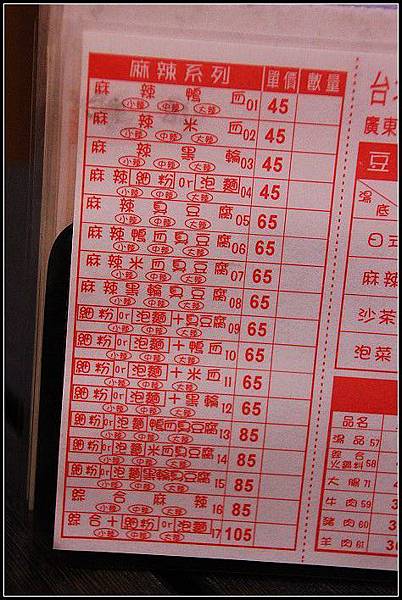 麻辣系列 單價 數量
麻辣鴨血01 45
小辣 中辣 大辣
麻辣米血02 45
小辣 中辣 大辣
麻辣黑輪03 45
小辣 中辣 大辣
麻辣細粉or泡麵04 45
小辣 中辣 大辣
麻辣臭豆腐05 65
小辣 中辣 大辣
麻辣鴨血臭豆腐06 65
小辣 中辣 大辣
麻辣米血臭豆腐07 65
小辣 中辣 大辣
麻辣黑輪臭豆腐08 65
小辣 中辣 大辣
細粉or泡麵+臭豆腐09 65
小辣 中辣 大辣
細粉or泡麵+鴨血10 65
小辣 中辣 大辣
細粉or泡麵+米血11 65
小辣 中辣 大辣
細粉or泡麵+黑輪12 65
小辣 中辣 大辣
細粉or泡麵鴨血臭豆腐13 85
小辣 中辣 大辣
細粉or泡麵米血臭豆腐14 85
小辣 中辣 大辣
細粉or泡麵黑輪臭豆腐15 85
小辣 中辣 大辣
綜合麻辣16 85
小辣 中辣 大辣
綜合+細粉or泡麵17 105
小辣 中辣 大辣
台
廣東
豆
湯底
日式
麻辣
沙茶
泡菜
品名
湯品57
綜合火鍋料58
大腸71
牛肉59
豬肉60
羊肉61